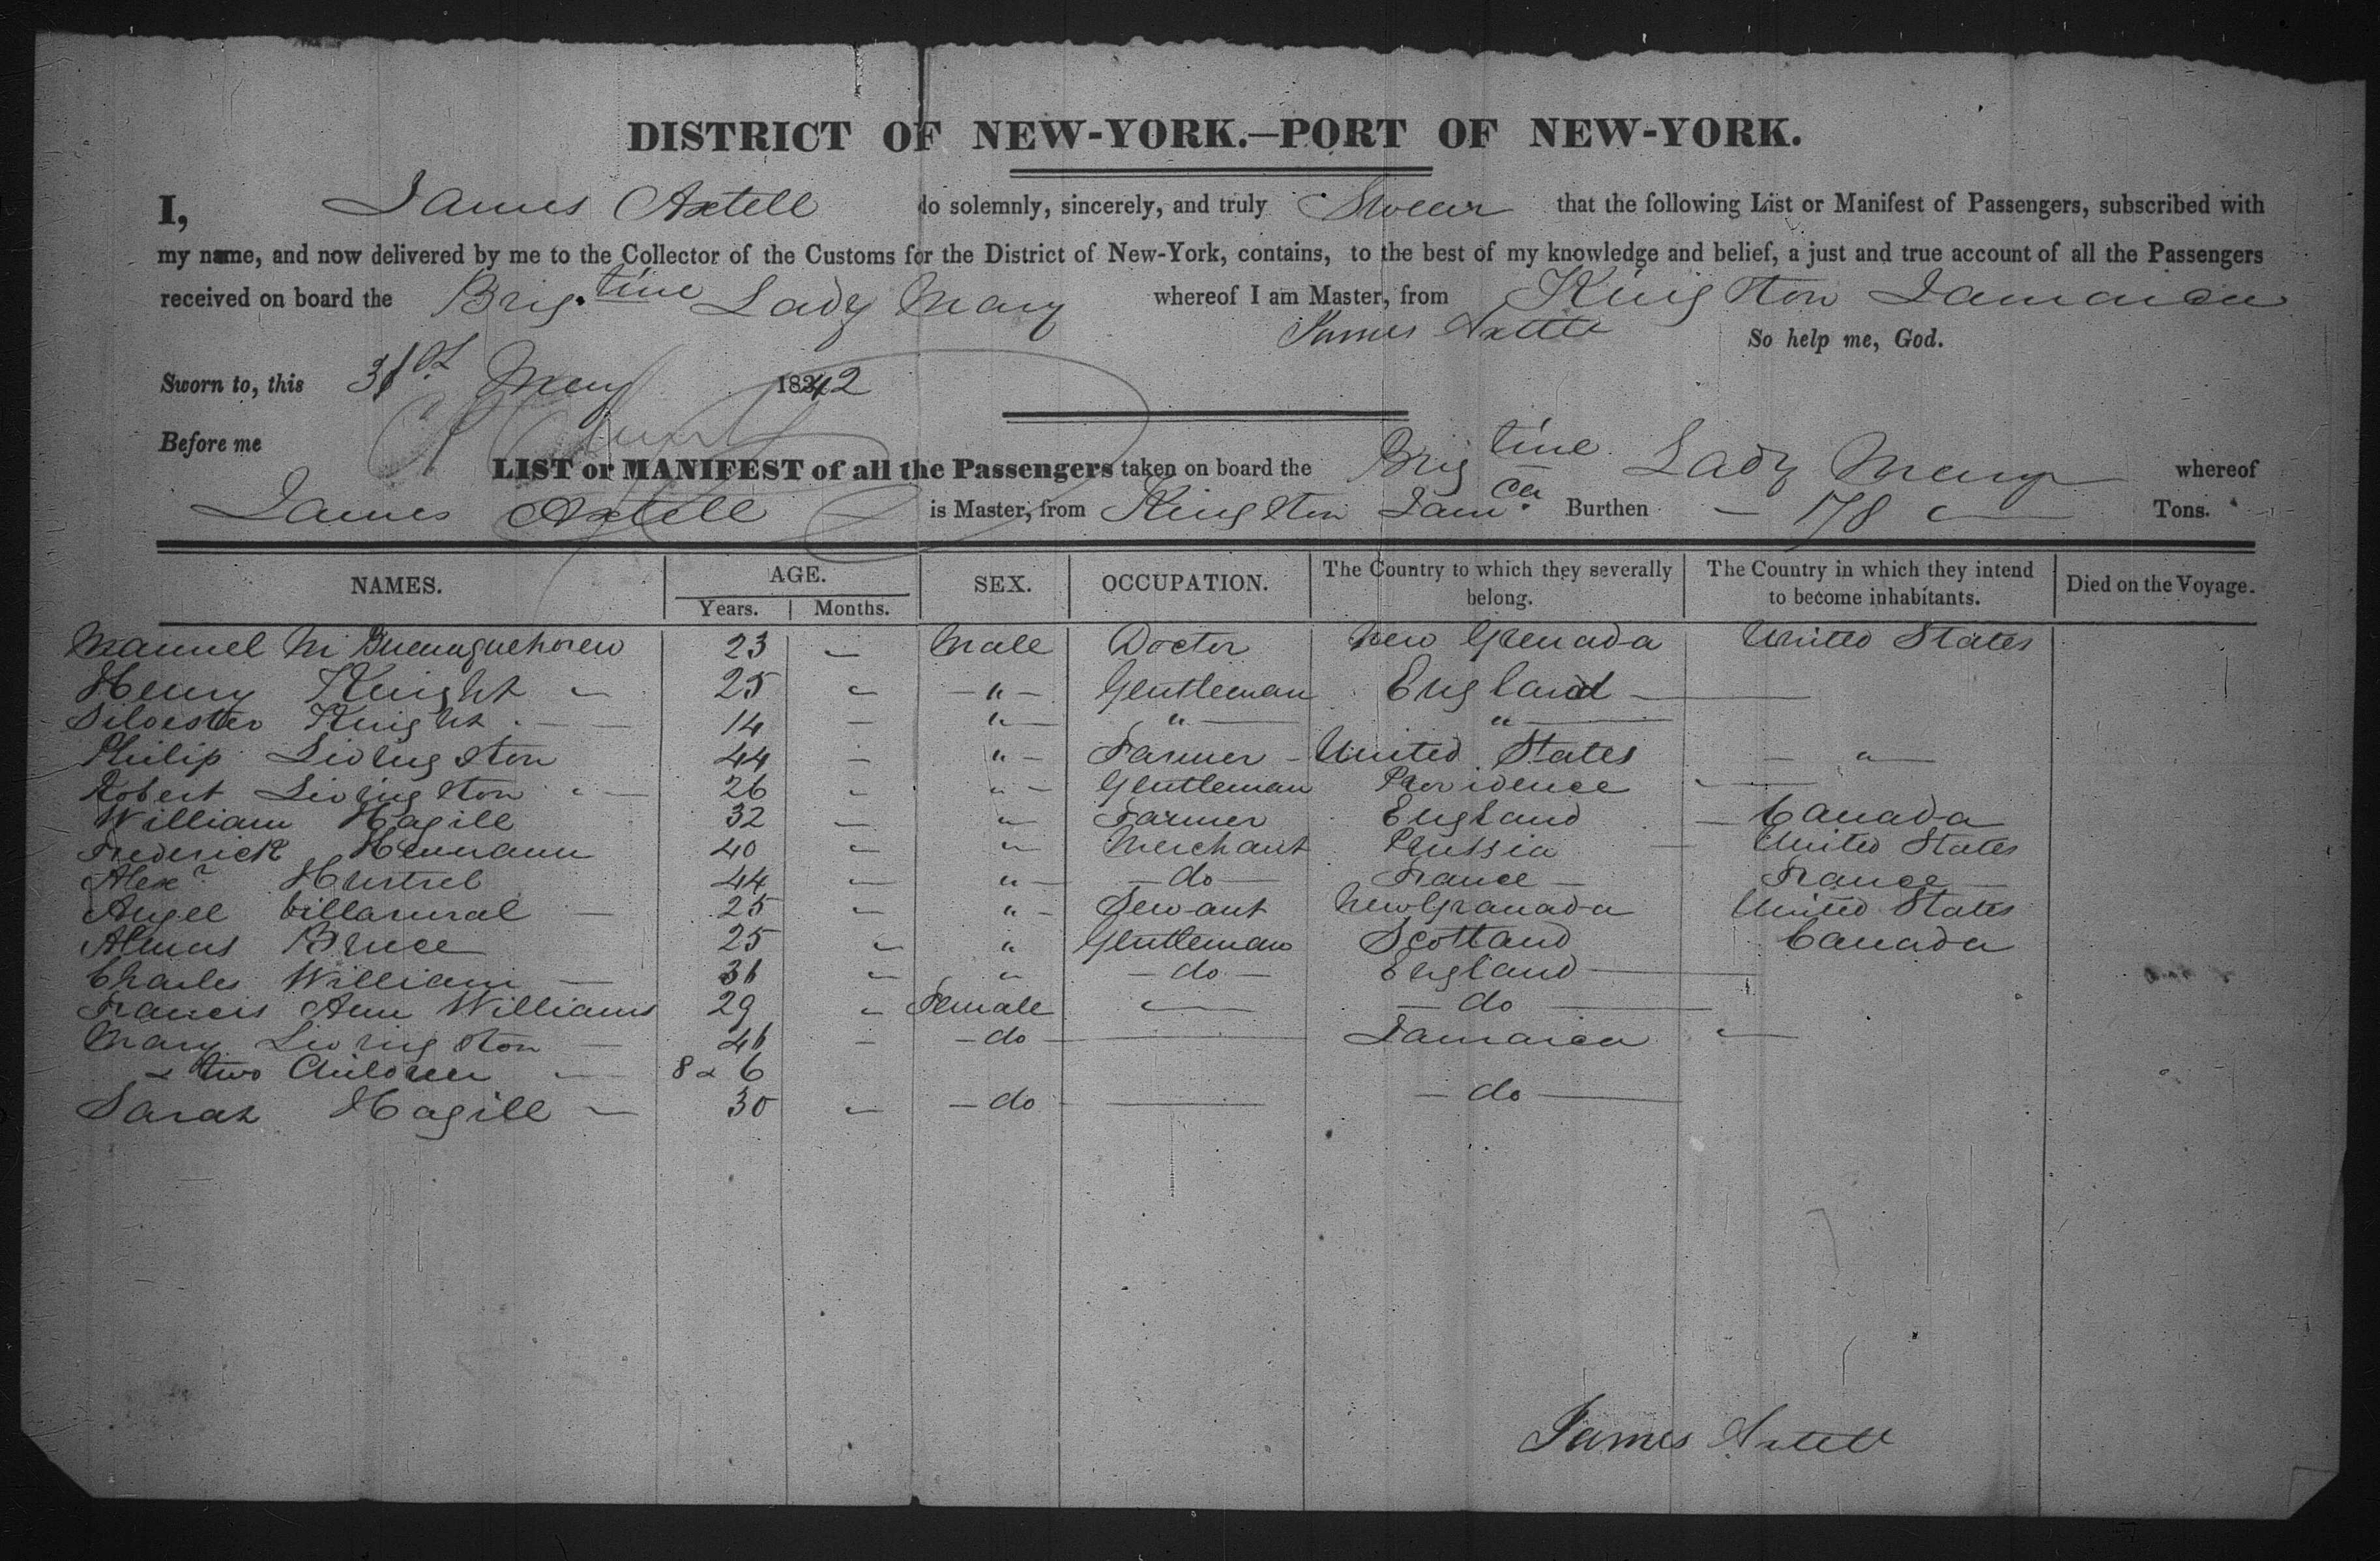 DISTRICT OF NEW-YORK.—PORT OF NEW-YORK.
I, James Axtell do solemnly, sincerely, and truly Swear that the following List or Manifest of Passengers, subscribed with
my name, and now delivered by me to the Collector of the Customs for the District of New-York, contains, to the best of my knowledge and belief, a just and true account of all the Passengers
received on board the Brig.tine Lady Mary whereof I am Master, from Kingston Jamaica
James Axtell So help me, God.
Sworn to, this 31st May 1842
Before me
LIST or MANIFEST of all the Passengers taken on board the Brigtine Lady Mary whereof
James Axtell is Master, from Kingston Jamca. Burthen — 178 — Tons.
NAMES. AGE. SEX. OCCUPATION. The Country to which they severally belong. The Country in which they intend to become inhabitants. Died on the Voyage.
Years. Months.
Manuel M 23 — Male Doctor New Grenada United States
Henry Knight — 25 — — " — Gentleman England —
Silvester Knight — 14 — " — " — " —
Philip Livingston 44 — " — Farmer — United States — " —
Robert Livingston " — 26 — " — Gentleman Providence —
William Hagill 32 — " Farmer England — Canada
Frederick Hermann 40 — " Merchant Prussia — United States
Alexr. 44 — " — — do — France — France —
Angel Villarural — 25 — " — Servant New Granada United States
Bruce 25 — " Gentleman Scotland Canada
Charles William — 36 — " — do — England —
Francis Ann Williams 29 — Female — — do —
Mary Livingston — 46 — — do — Jamaica —
& two Children — 8 & 6
Sarah Hagill — 30 — — do — — do —
James Axtell